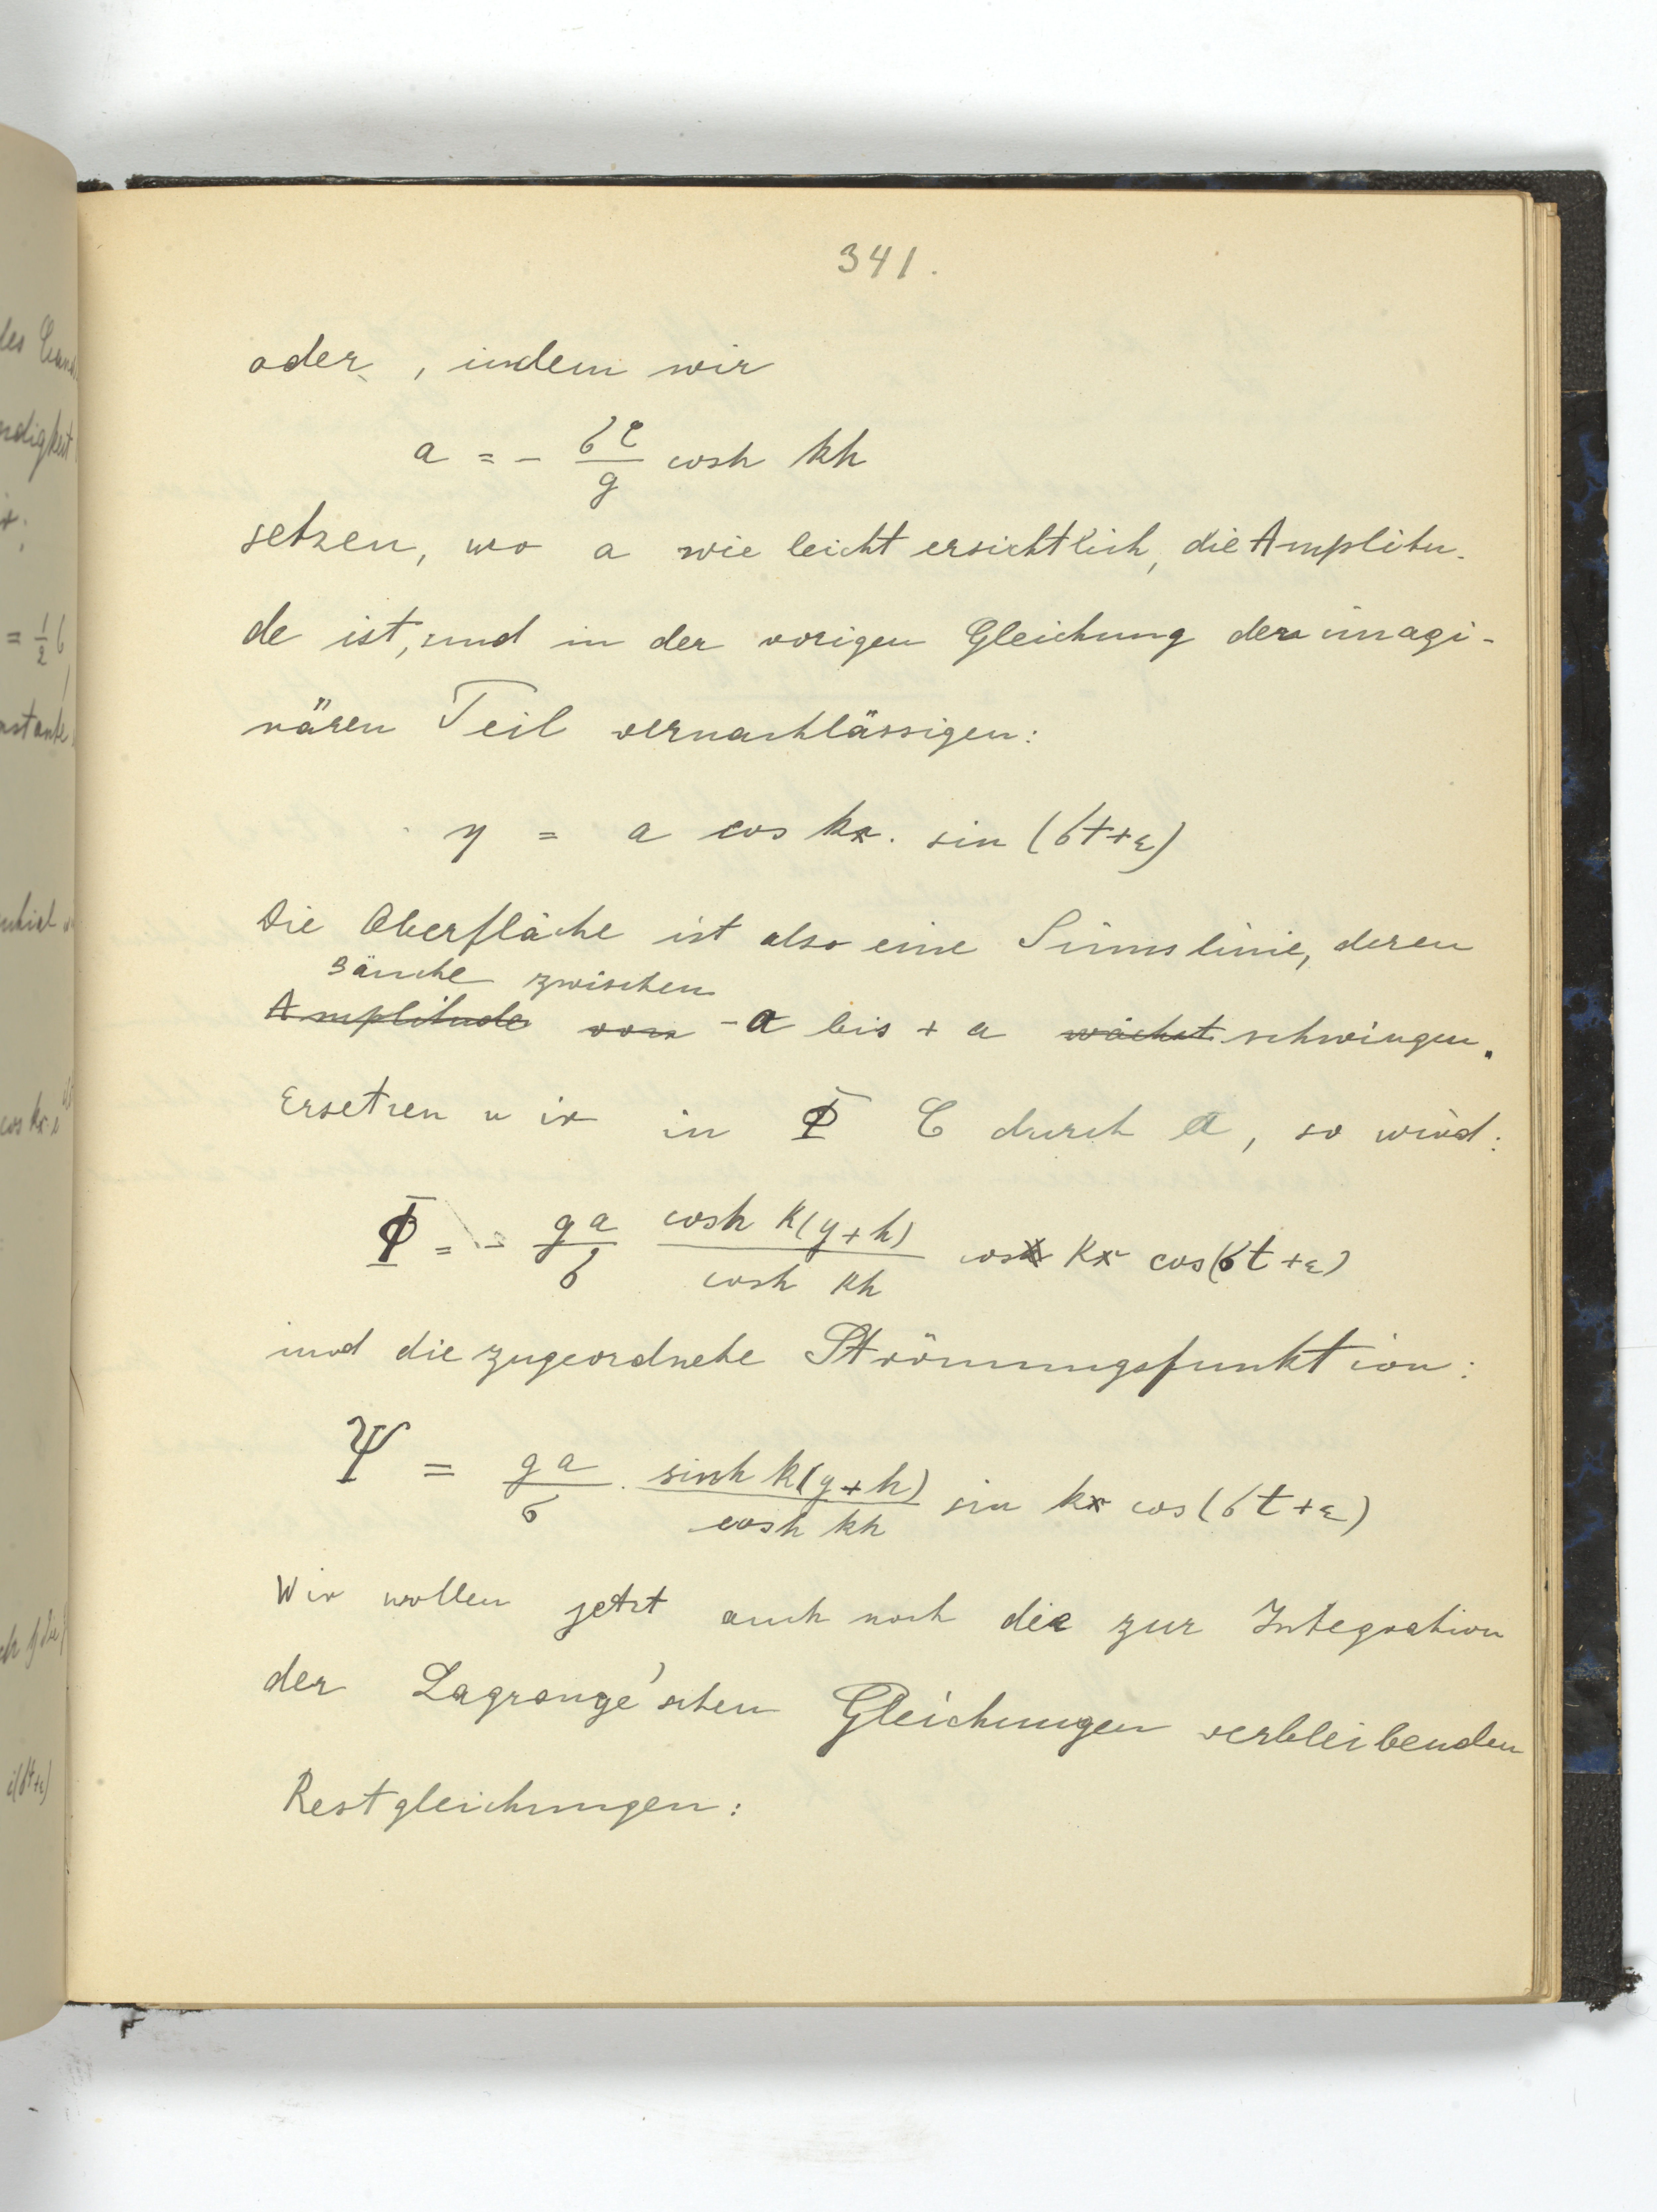 341.
oder, indem wir
a = - σC/g cosh kh
setzen, wo a wie leicht ersichtlich, die Amplitu-
de ist, und in der vorigen Gleichung den imagi-
nären Teil vernachlässigen:
η = a cos kx. sin (σt+ε)
Die Oberfläche ist also eine Sinuslinie, deren
Bäuche zwischen
Amplitude von -a bis + a wächst schwingen.
Ersetzen wir in Φ C durch a, so wird:
Φ = - ga/σ cosh k(y+h)/cosh kh cos kx cos(σt+ε)
und die zugeordnete Strömungsfunktion:
Ψ = ga/σ . sinh k(y+h)/cosh kh sin kx cos(σt+ε)
Wir wollen jetzt auch noch die zur Integration
der Lagrange'schen Gleichungen verbleibenden
Restgleichungen: